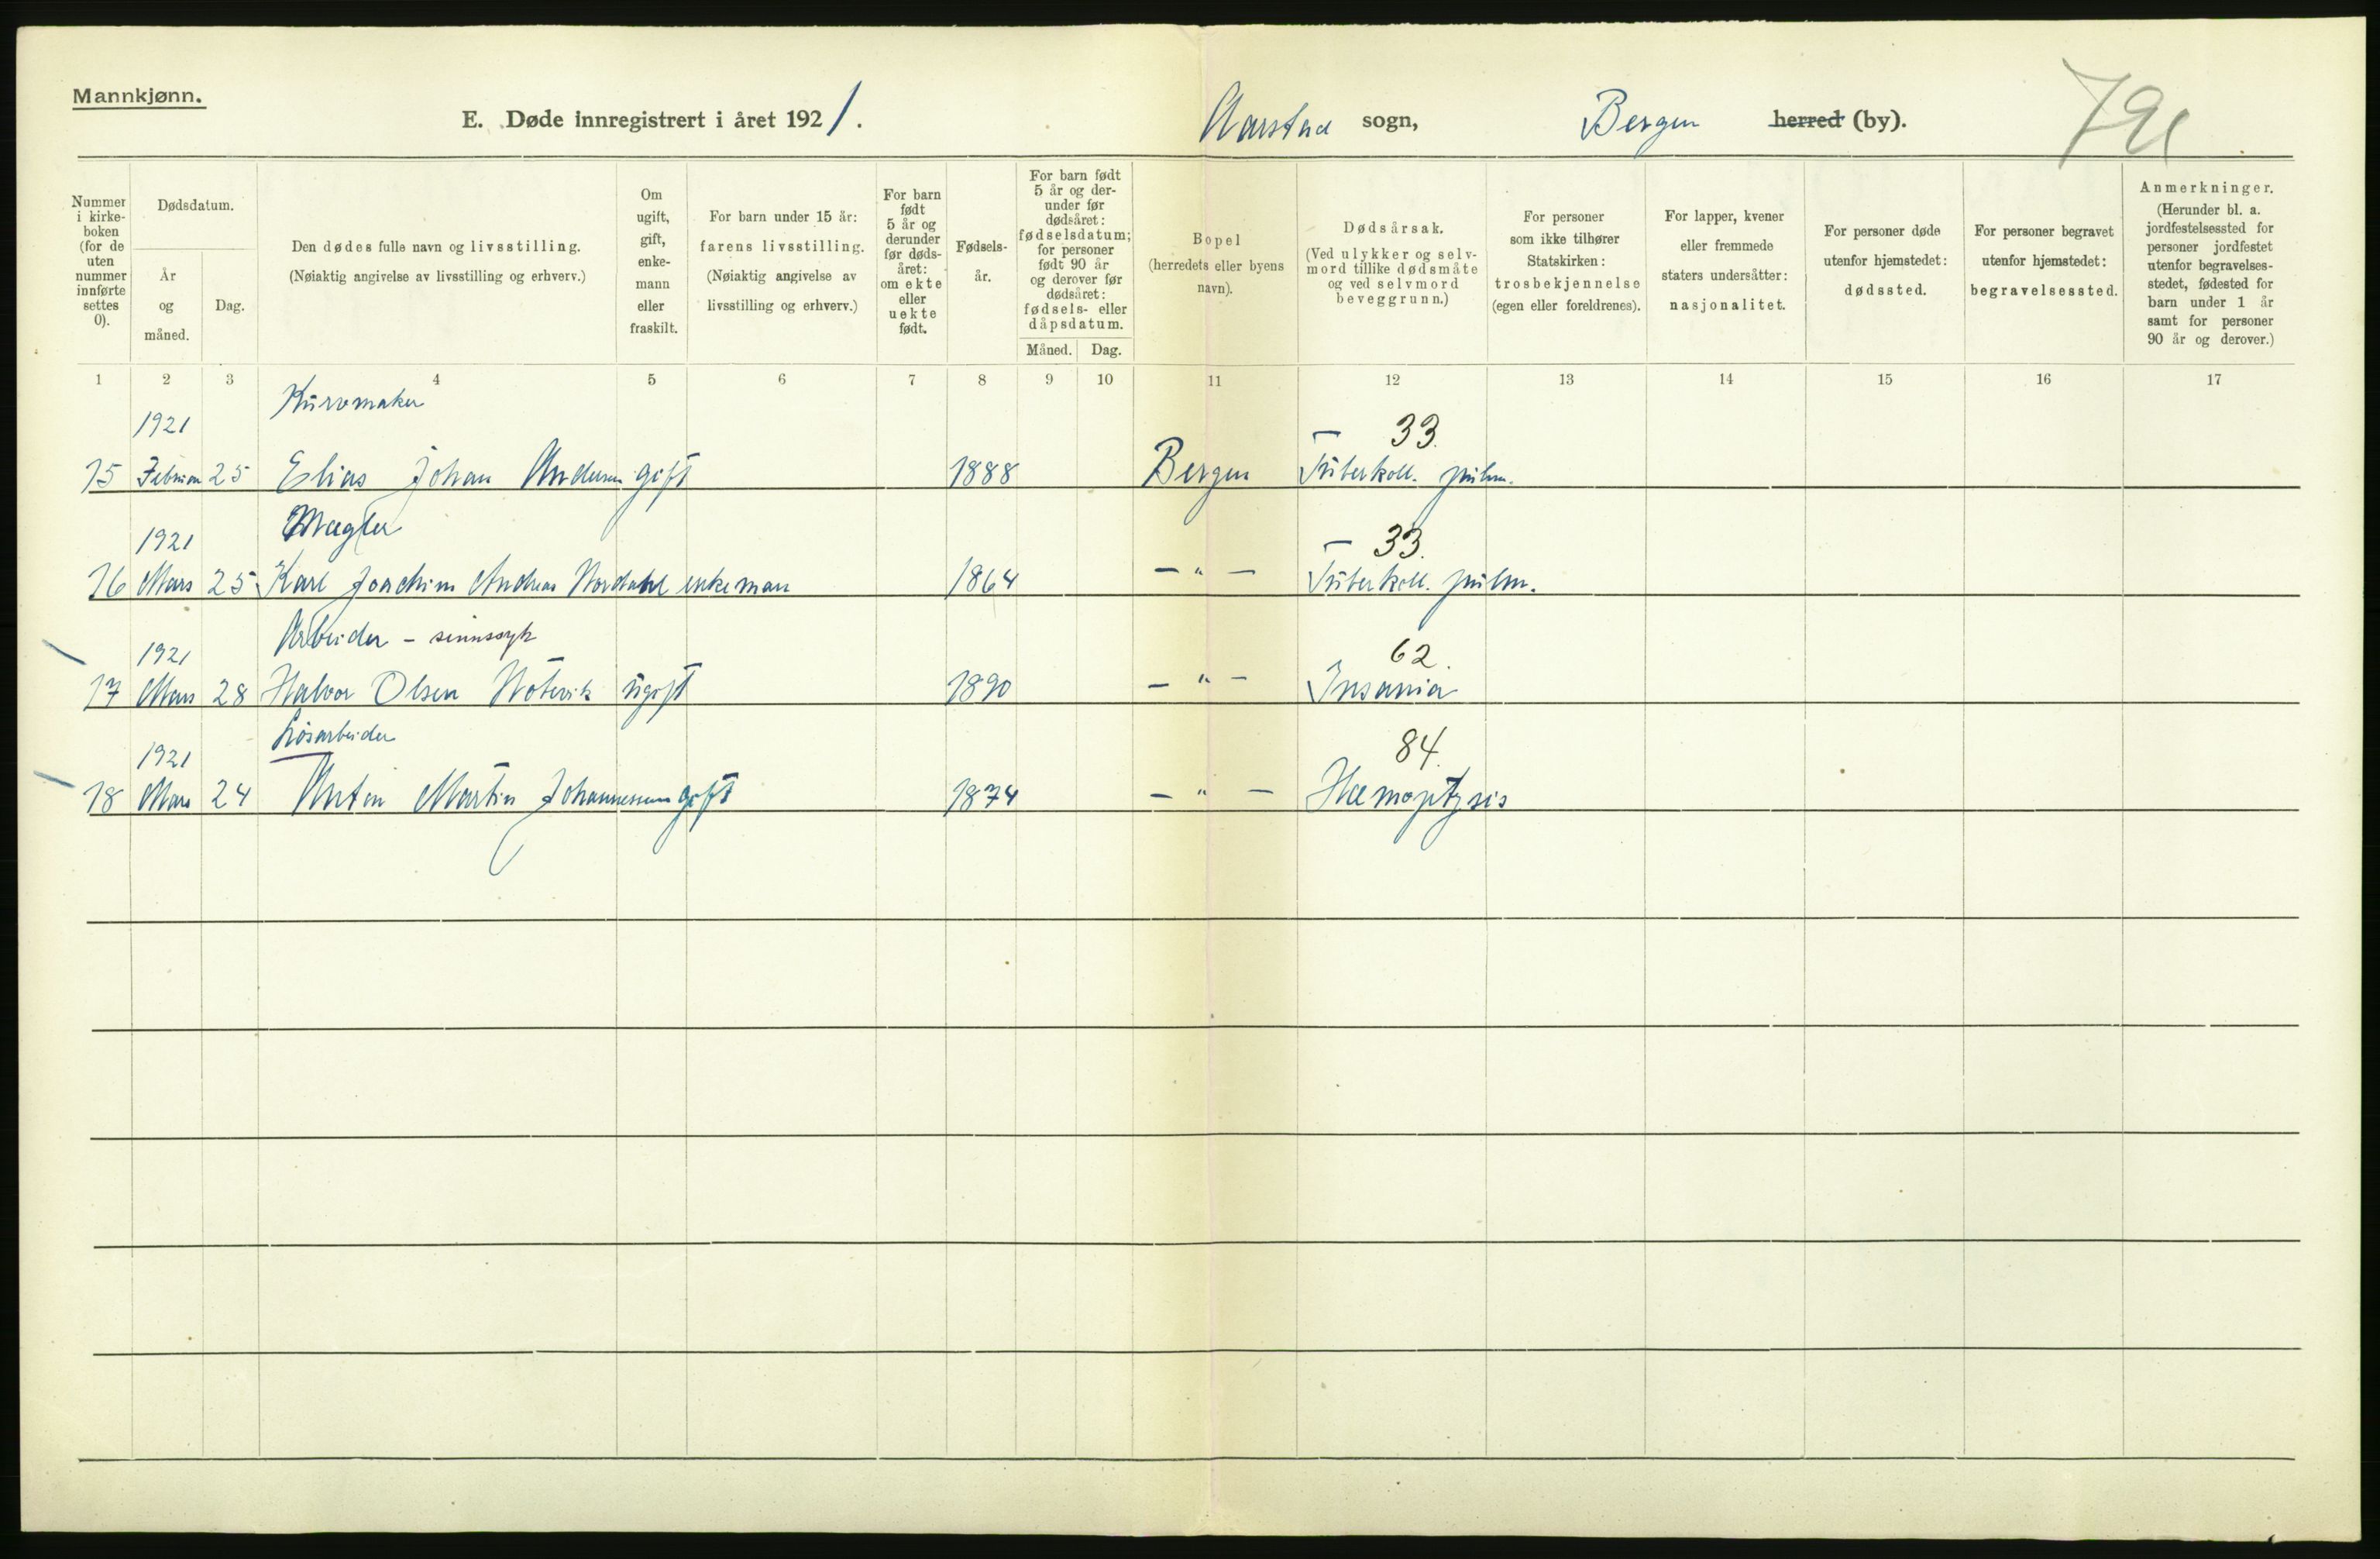 Mannkjønn.
E. Døde innregistrert i året 1921.
Aarstad sogn, Bergen herred (by).
Nummer i kirke-
boken
(for de
uten
nummer
innførte
settes
0).
Dødsdatum.
År
og
måned.
Dag.
Den dødes fulle navn og livsstilling.
(Nøiaktig angivelse av livsstilling og erhverv.)
Om
ugift,
gift,
enke-
mann
eller
fraskilt.
For barn under 15 år:
farens livsstilling.
(Nøiaktig angivelse av
livsstilling og erhverv.)
For barn
født
5 år og
derunder
før døds-
året:
om ekte
eller
uekte
født.
Fødsels-
år.
For barn født
5 år og der-
under før
dødsåret:
fødselsdatum;
for personer
født 90 år
og derover før
dødsåret:
fødsels- eller
dåpsdatum.
Måned. Dag.
Bopel
(herredets eller byens
navn).
Dødsårsak.
(Ved ulykker og selv-
mord tillike dødsmåte
og ved selvmord
beveggrunn.)
For personer
som ikke tilhører
Statskirken:
trosbekjennelse
(egen eller foreldrenes).
For lapper, kvener
eller fremmede
staters undersåtter:
nasjonalitet.
For personer døde
utenfor hjemstedet:
dødssted.
For personer begravet
utenfor hjemstedet:
begravelsessted.
Anmerkninger.
(Herunder bl. a.
jordfestelsessted for
personer jordfestet
utenfor begravelses-
stedet, fødested for
barn under 1 år
samt for personer
90 år og derover.)
1 2 3 4 5 6 7 8 9 10 11 12 13 14 15 16 17
Kurvmaker
1921 33.
15 Februar 25 Elias Johan Andersen gift 1888 Bergen Tuberkoll. pulm.
Mægler
1921 33.
16 Mars 25 Karl Joachim Andreas Nordahl enkeman 1864 — " — Tuberkoll. pulm.
Arbeider - sinnssyk
1921 62.
17 Mars 28 Halvor Olsen ugift 1890 — " — Insania
Løsarbeider
1921 84.
18 Mars 24 Anton Martin Johannessen gift 1874 — " — Hæmoptysis